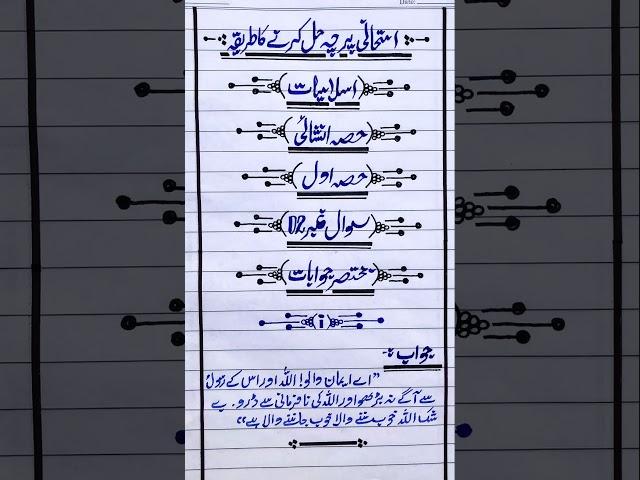 Date:
امتحانی پیپر چہ حل کرنے کا طریقہ
(اسلامیات)
(حصہ انشائی)
(حصہ اول)
(سوال نمبر 02)
(مختصر جوابات)
(i)
جواب:-
”اے ایمان والو! اللہ اور اس کے رسولؐ
سے آگے نہ بڑھو اور اللہ کی نافرمانی سے ڈرو۔ بے
شک اللہ خوب سننے والا خوب جاننے والا ہے“